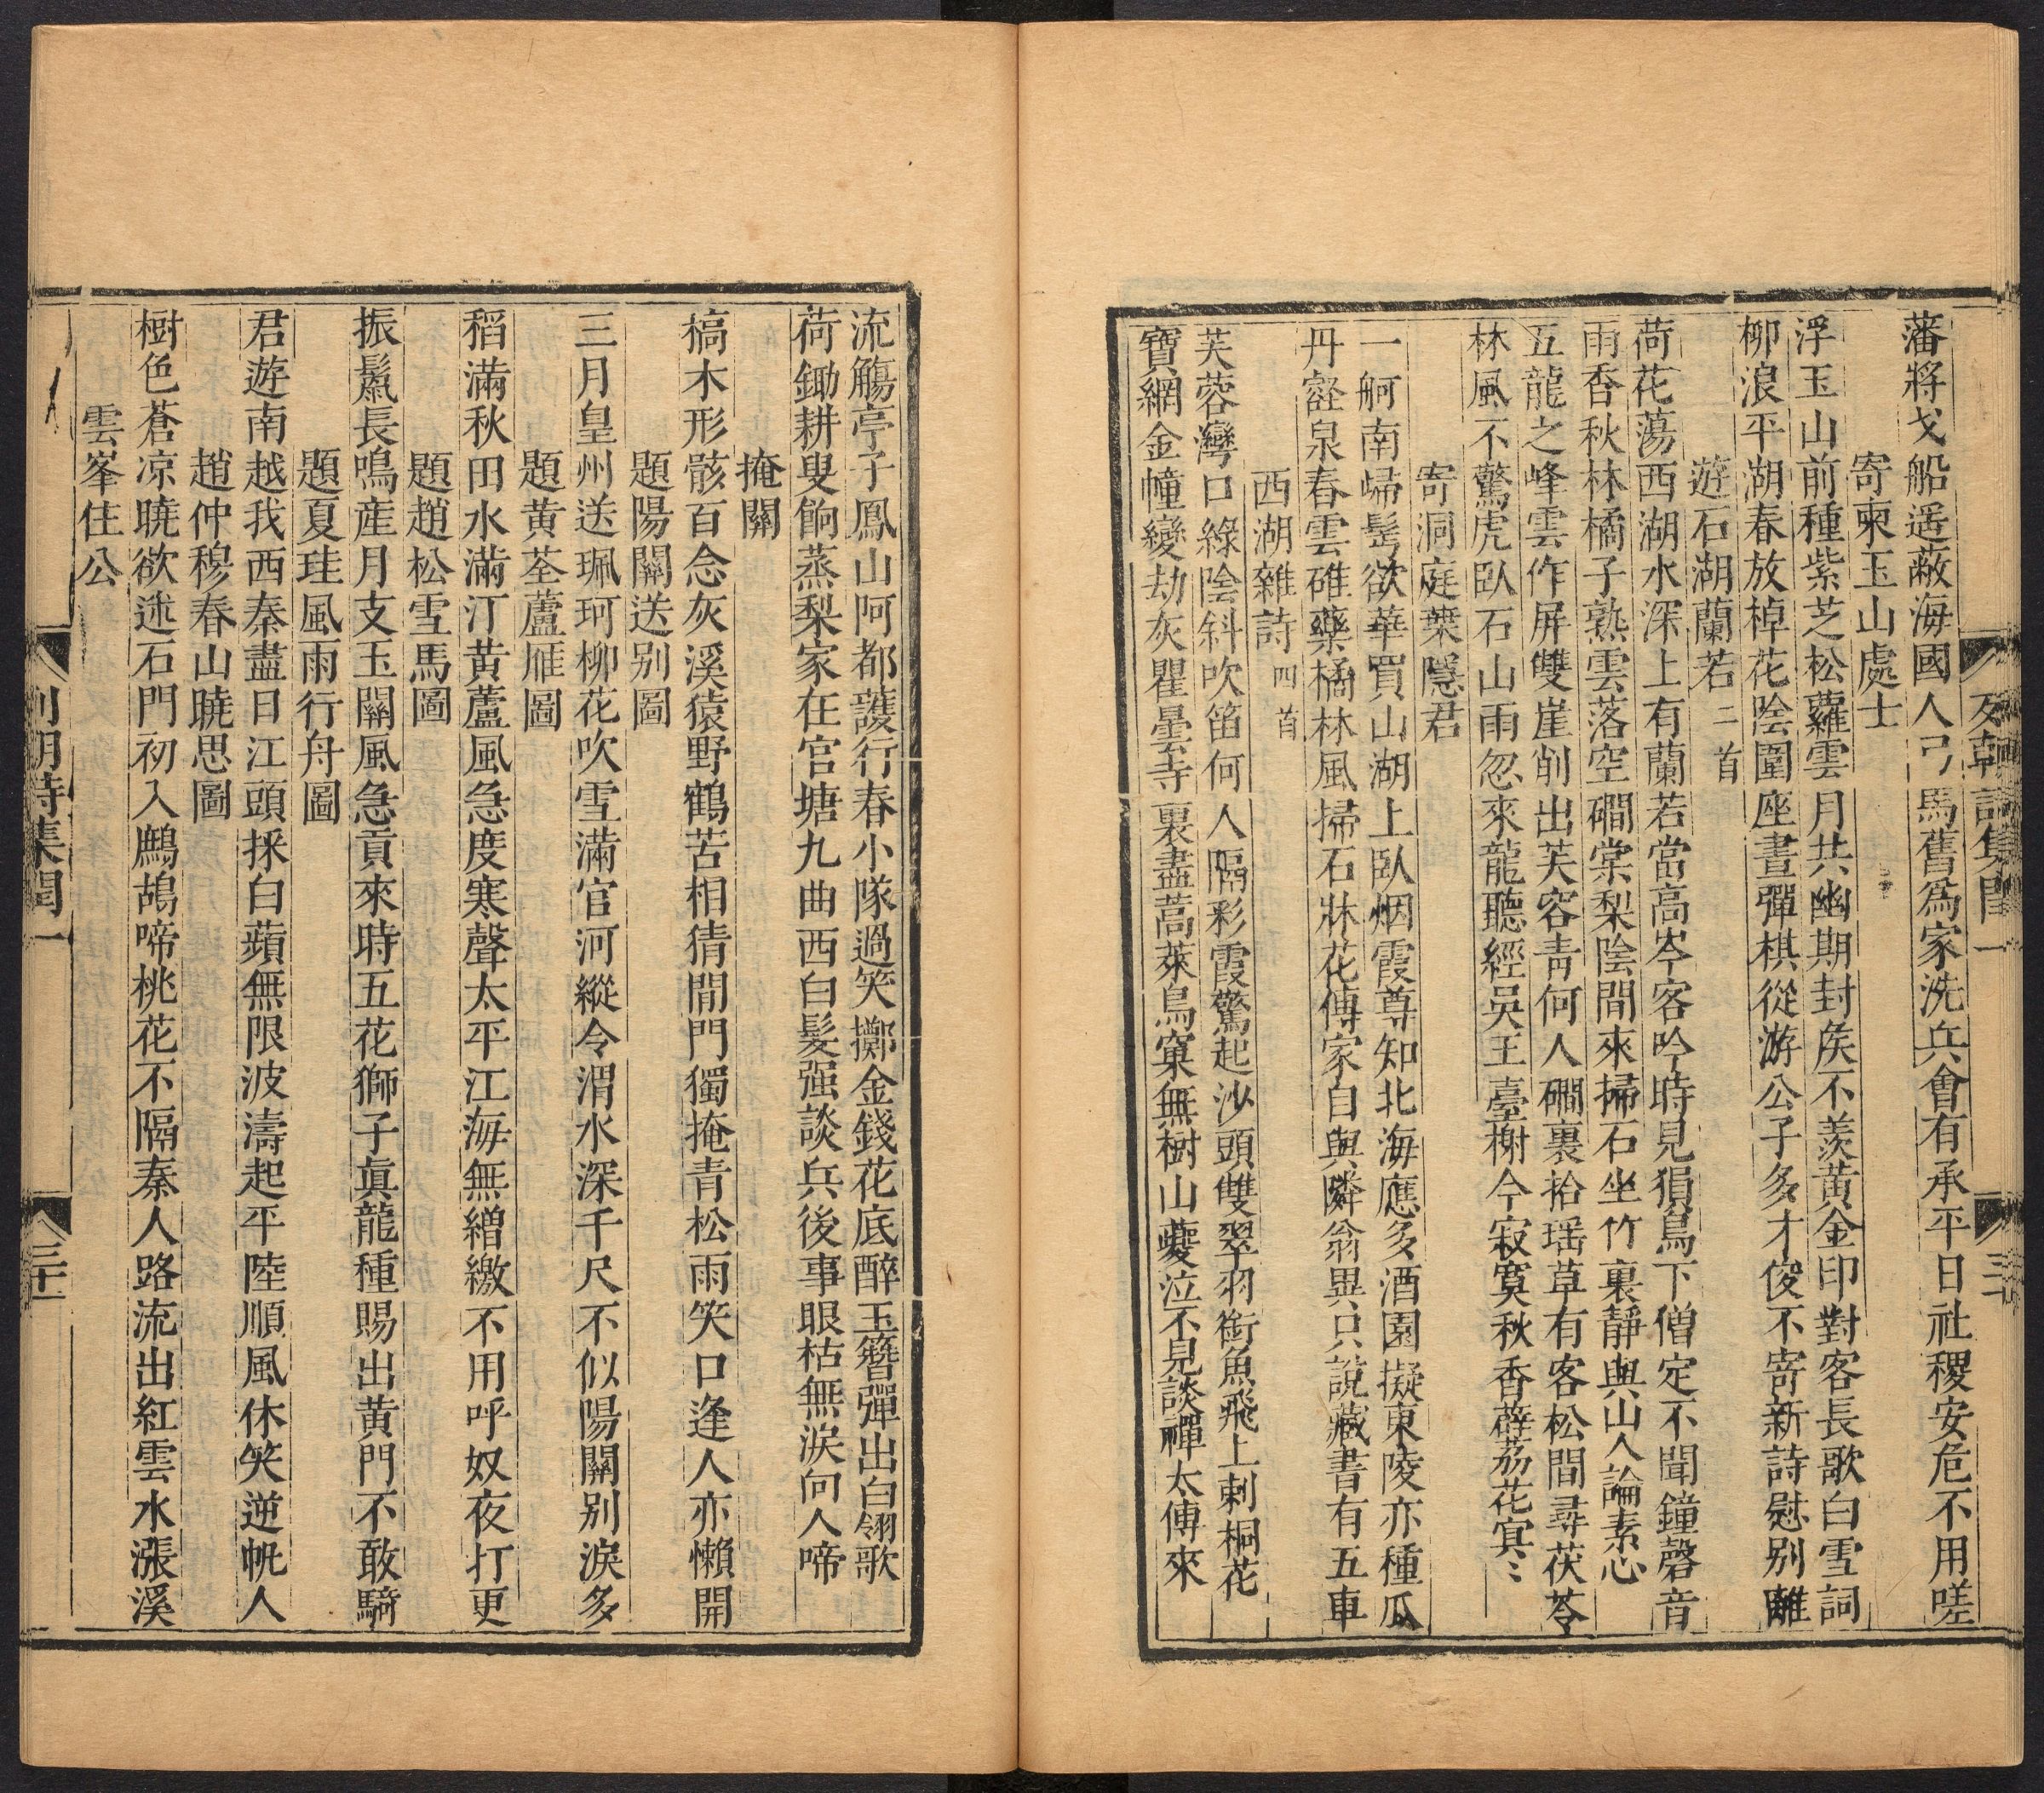 藩將戈船遥蔽海國人弓馬舊爲家洗兵會有承平日社稷安危不用嗟
寄柬玉山處士
浮玉山前種紫芝松蘿雲月共幽期封矦不羨黄金印對客長歌白雪詞
柳浪平湖春放棹花陰圍座晝彈棋從游公子多才俊不寄新詩慰别離
遊石湖蘭若二首
荷花蕩西湖水深上有蘭若當高岑客吟時見狷鳥下僧定不聞鐘磬音
雨香秋林橘子熟雲落空磵棠梨陰間來掃石坐竹裏靜與山人論素心
五龍之峰雲作屏雙崖削出芙容青何人磵裏拾瑶草有客松間尋茯苓
林風不驚虎臥石山雨忽來龍聽經吳王臺榭今寂寞秋香薜荔花冥〻
寄洞庭葉隱君
一舸南歸髩欲華買山湖上臥烟霞尊知北海應多酒園擬東陵亦種瓜
丹壑泉春雲碓藥橘林風掃石牀花傳家自與隣翁異只說藏書有五車
西湖雜詩四首
芙蓉灣口綠陰斜吹笛何人隔彩霞驚起沙頭雙翠羽銜魚飛上刺桐花
寶網金幢變劫灰瞿曇寺裏盡蒿萊鳥窠無樹山夔泣不見談禪太傅來
流觴亭子鳳山阿都護行春小隊過笑擲金錢花底醉玉簪彈出白翎歌
荷鋤耕叟餉蒸梨家在官塘九曲西白髮强談兵後事眼枯無淚向人啼
掩關
槁木形骸百念灰溪猿野鶴苦相猜閒門獨掩青松雨笑口逢人亦懶開
題陽關送别圖
三月皇州送珮珂柳花吹雪滿官河縱令渭水深千尺不似陽關别淚多
題黄荃蘆雁圖
稻滿秋田水滿汀黄蘆風急度寒聲太平江海無繒繳不用呼奴夜打更
題趙松雪馬圖
振鬣長鳴産月支玉關風急貢來時五花獅子眞龍種賜出黄門不敢騎
題夏珪風雨行舟圖
君遊南越我西秦盡日江頭採白蘋無限波濤起平陸順風休笑逆帆人
趙仲穆春山曉思圖
樹色蒼凉曉欲迷石門初入鷓鴣啼桃花不隔秦人路流出紅雲水漲溪
雲峯住公
列朝詩集閏一
三十
列朝詩集閏一